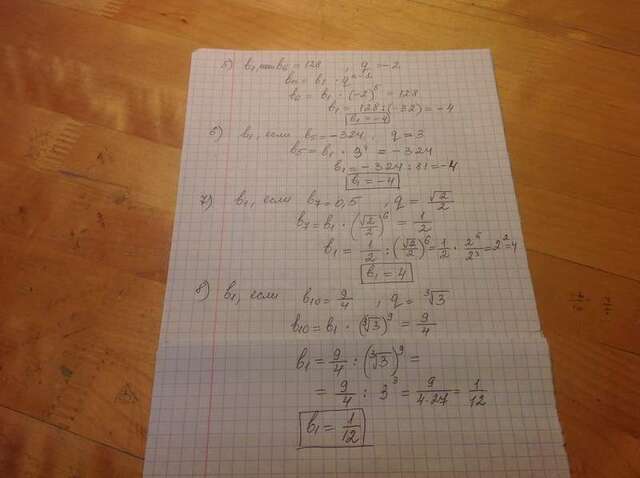 5) b₁, если b₆ = 128 , q = -2
bₙ = b₁ · qⁿ⁻¹
b₆ = b₁ · (-2)⁵ = 128
b₁ = 128 : (-32) = -4
b₁ = -4
6) b₁, если b₅ = -324 , q = 3
b₅ = b₁ · 3⁴ = -324
b₁ = -324 : 81 = -4
b₁ = -4
7) b₁, если b₇ = 0,5 , q = √2/2
b₇ = b₁ · (√2/2)⁶ = 1/2
b₁ = 1/2 : (√2/2)⁶ = 1/2 · 2⁶/2³ = 2² = 4
b₁ = 4
8) b₁, если b₁₀ = 9/4 , q = ³√3
b₁₀ = b₁ · (³√3)⁹ = 9/4
b₁ = 9/4 : (³√3)⁹ =
= 9/4 : 3³ = 9/4·27 = 1/12
b₁ = 1/12